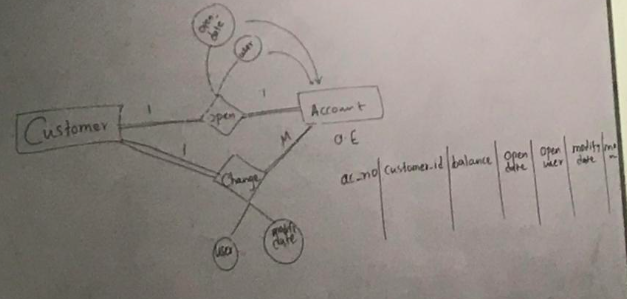 open
date
user
1
1
Customer
open
Account
1
M
O.E
Change
user
modify
date
ac_no customer_id balance open date open user modify date